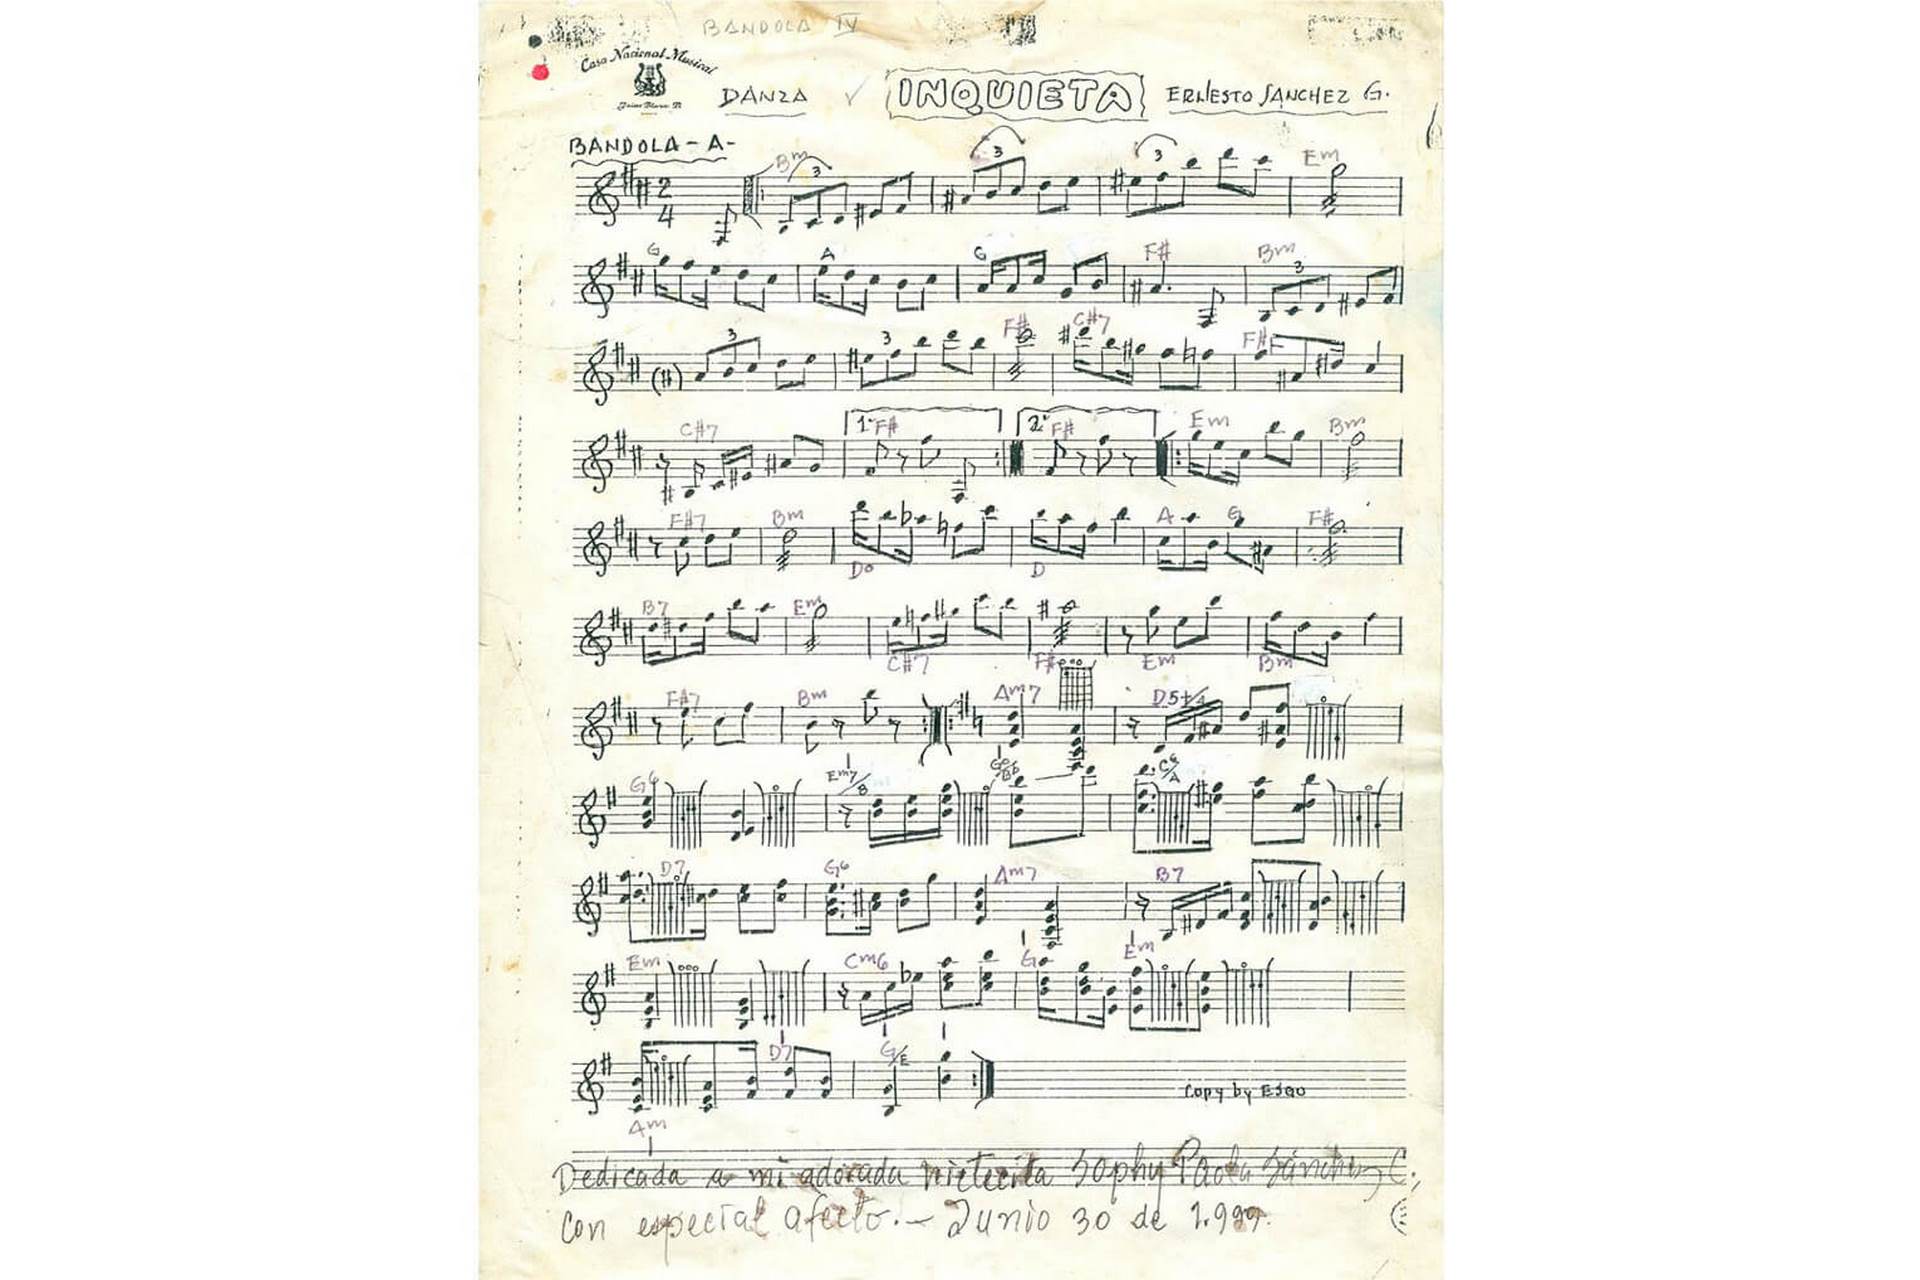 BANDOLA IV
Casa Nacional Musical
DANZA INQUIETA ERNESTO SANCHEZ G.
BANDOLA - A -
Bm 3 3 3 Em
2 4
G A G F# Bm 3
(#) 3 3 F# C#7 F#
C#7 1ª F# 2ª F# Em Bm
F#7 Bm A G F#
Do D
B7 Em
C#7 F# Em Bm
F#7 Bm Am7 D5+/4
G6 Em7/B Go Bb C6/A
D7 G6 Am7 B7
Em Cm6 G Em
D7 G/E
Copy by ESGO
Am
Dedicada a mi adorada nietecita Sophy Paola Sánchez C.,
con especial afecto. - Junio 30 de 1.999.